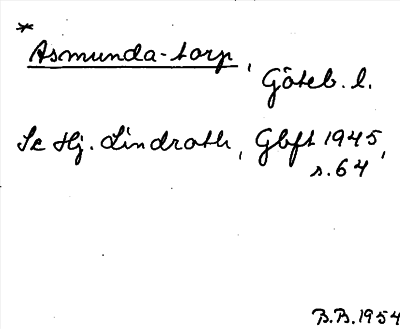 *
Asmunda-torp,
Göteb. l.
Se Hj. Lindroth, Gbft 1945,
s. 64
B.B. 1954